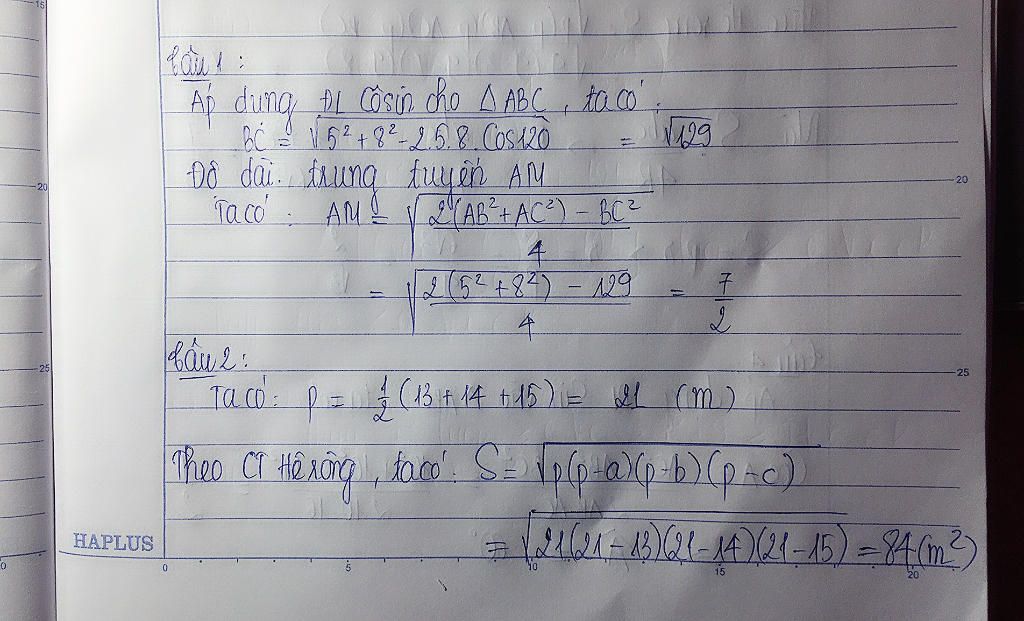 Câu 1:
Áp dụng ĐL Côsin cho △ABC, ta có:
BC = √(5² + 8² - 2.5.8.Cos120) = √129
Độ dài trung tuyến AM
Ta có: AM = √((2(AB² + AC²) - BC²)/4)
= √((2(5² + 8²) - 129)/4) = 7/2
Câu 2:
Ta có: p = 1/2 (13 + 14 + 15) = 21 (m)
Theo CT Hê rông, ta có: S = √(p(p-a)(p-b)(p-c))
= √(21(21-13)(21-14)(21-15)) = 84 (m²)
HAPLUS
15
20
25
0
0 5 10 15 20
20
25